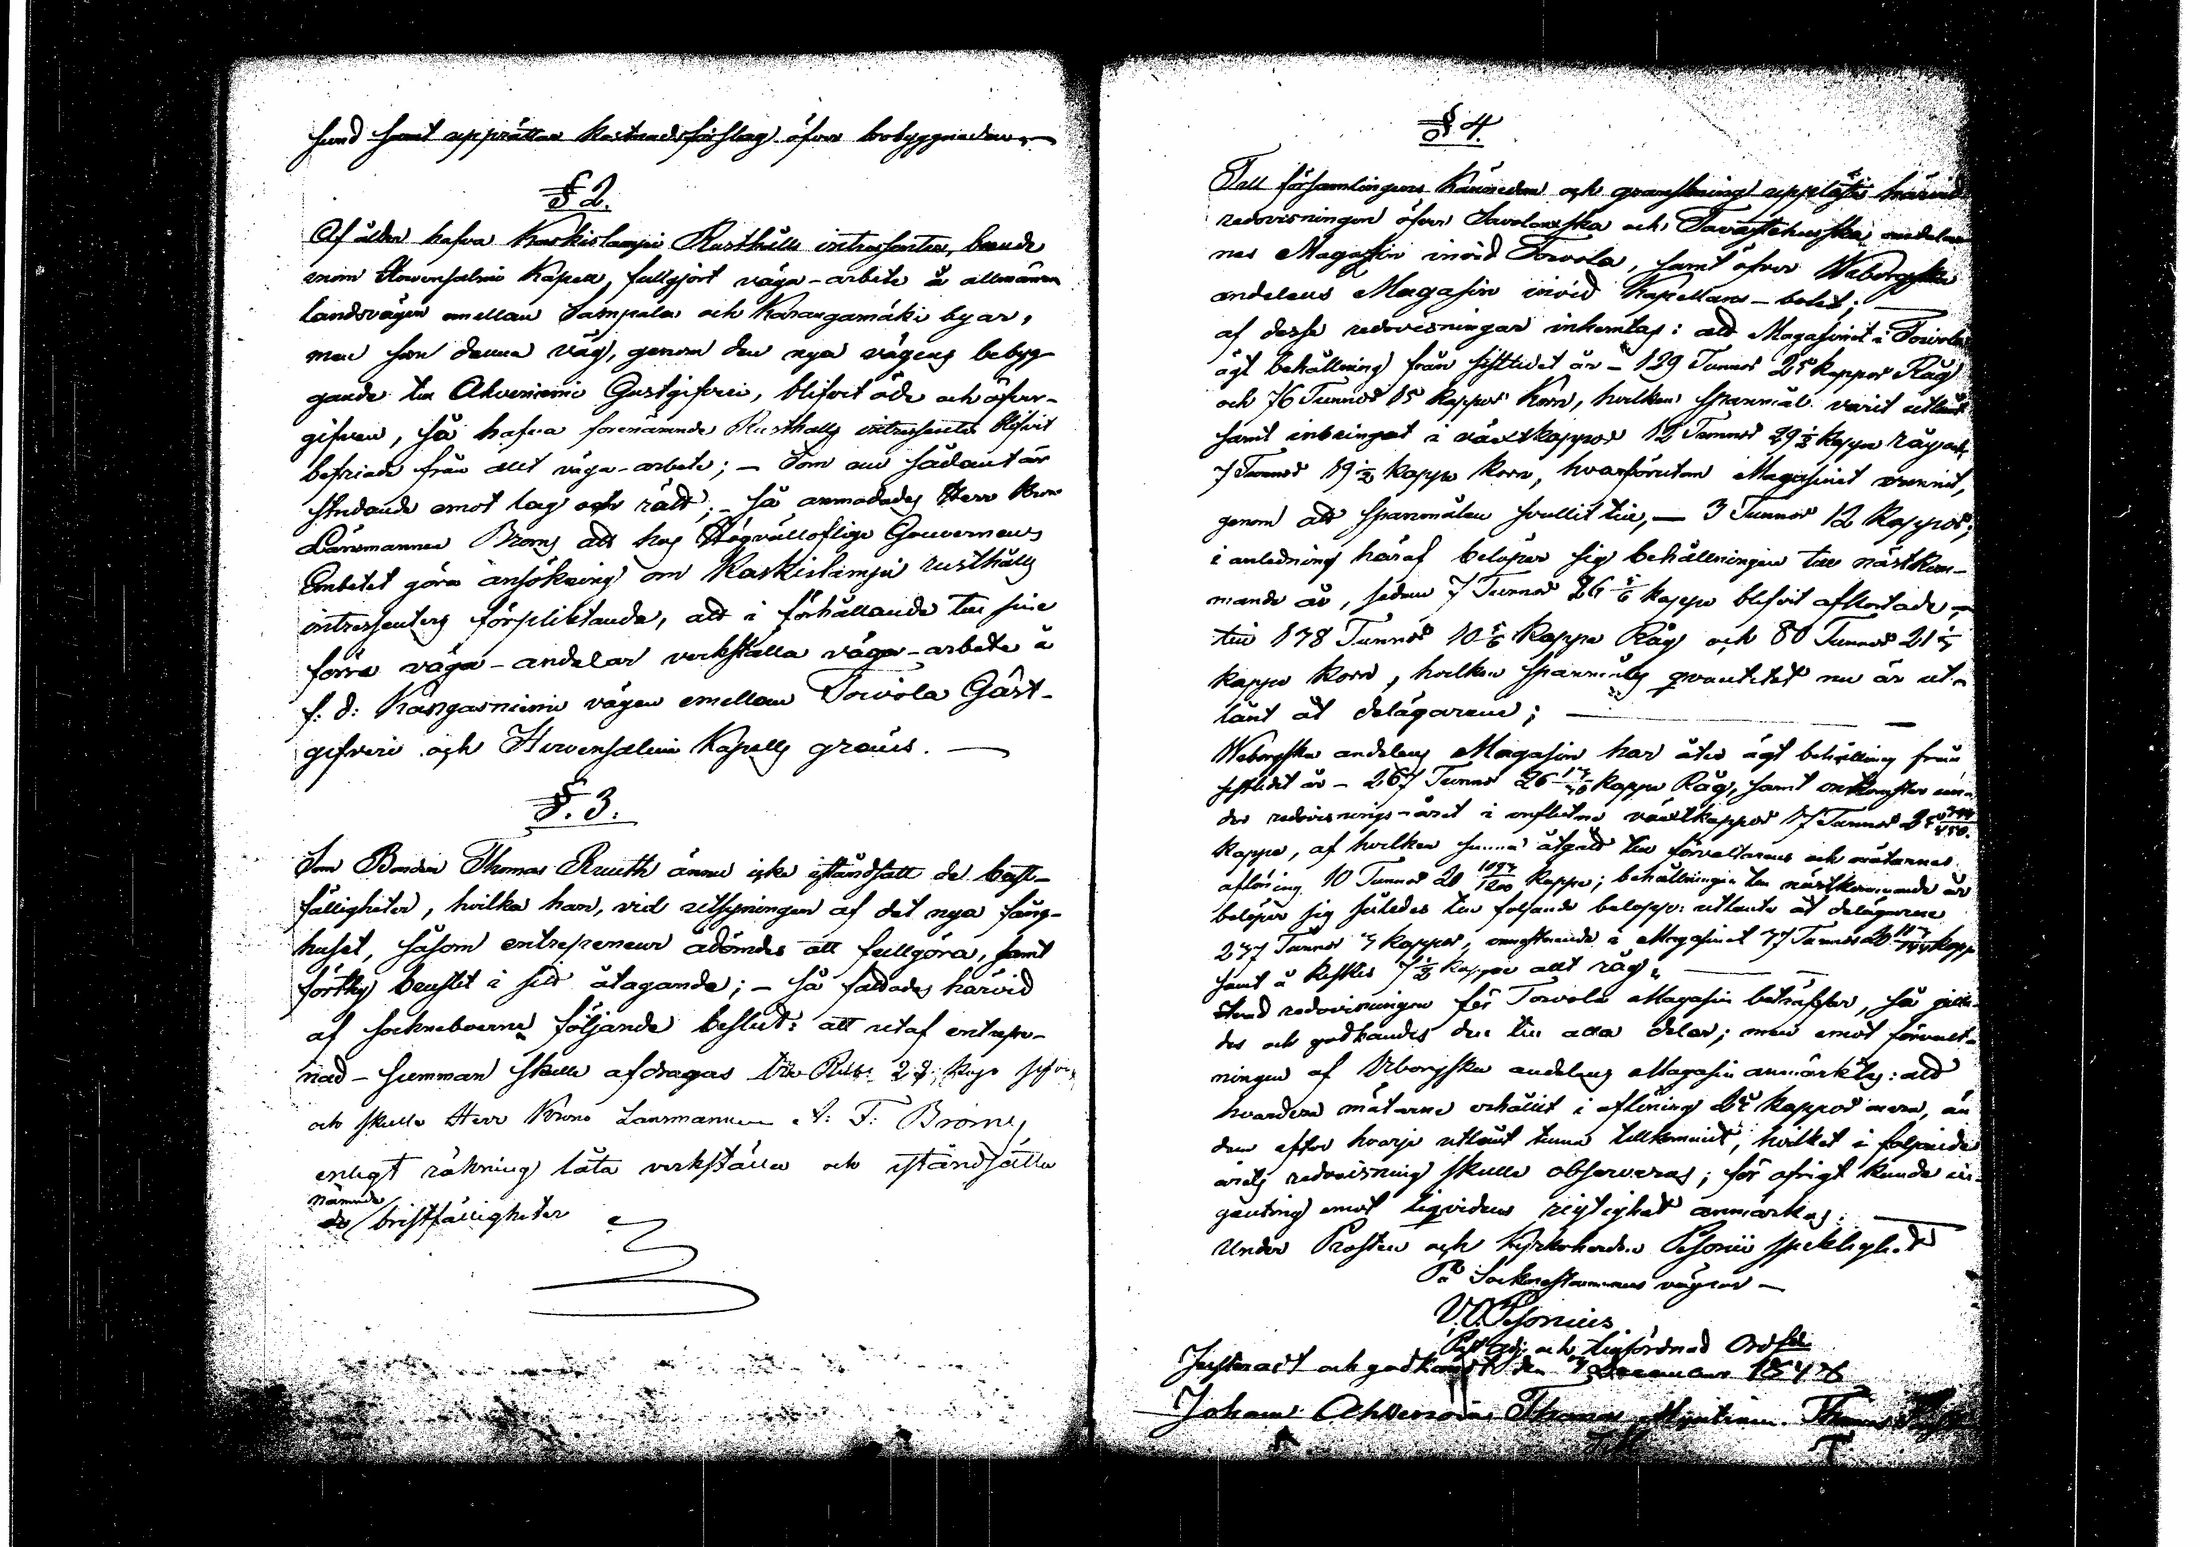 hund samt upprättar kostnadsförslag öfver brobyggnaden
§ 2.
Af ålder hafva Kaskislampi Rusthålls intressenter, boende
inom Hirvensalmi Kapell, fullgjort väga-arbete å allmänna
landsvägen emellan Lampala och Karangamäki byar,
men som denna väg, genom den nya vägens bebyg-
gande till Ahveniemi Gästgifveri, blifvit öde och öfver-
gifven, så hafva förenämnde Rusthålls intressenter blifvit
befriade från allt väga-arbete; – Som ett sådant är
stridande emot lag och rätt; – så anmodades Herr Krono
Länsmannen Broms att hos Högvällofliga Gouverneurs
Embetet göra ansökning om Kaskislampi rusthålls
intressenters förpliktande, att i förhållande till sine
förra väga-andelar verkställa väga-arbete å
f: d: Kangasniemi vägen emellan Toivola Gäst-
gifveri och Hirvensalmi Kapells gräns. —
§. 3.
Som Bonden Thomas Ruuth ännu icke iståndsatt de brist-
fälligheter, hvilka han, vid utsyningen af det nya fång-
huset, såsom entrepreneur ådömdes att fullgöra, samt
förthy brustit i sitt åtagande; – så fattades härvid
af sockneboerne följande beslut: att utaf entrepre-
nad-summan skulle afdragas Rub. 28 kop silfver
och skulle Herr Krono Länsmannen A: F: Broms
enligt räkning låta verkställa och iståndsätta
nämnde
bristfälligheter
§ 4.
Till församlingens kännedom och granskning upplästes härvid
redovisningen öfver Savolakska och Tavastehuska andelar-
nes Magasin invid Toivola, samt öfver Wiborgska
andelens Magasin invid Kapellans-bolet;
af desse redovisningar inhemtas: att Magasinet i Toivola
ägt behållning från sistlidet år – 129 Tunnor 25 kappor Råg
och 76 Tunnor 15 kappor Korn, hvilken spannmål varit utlånt
samt inbringat i växtkappor 12 Tunnor 29 1/2 kappe råg och
7 Tunnor 19 1/2 kappe korn, hvarförutan Magasinet vunnit,
genom att spannmålen svullit till, — 3 Tunnor 12 kappor;
i anledning häraf belöper sig behållningen till nästkom-
mande år, sedan 7 Tunnor 26 1/6 kappe blifvit aflöntade,
till 138 Tunnor 10 5/6 kappe Råg och 80 Tunnor 21
kappe korn, hvilken spannmåls qvantitet nu är ut-
lånt åt delägarene;
Wiborgska andelens Magasin har åter ägt behållning från
sistlidet år – 267 Tunnor 26 kappe Råg, samt
der redovisnings-året i influtne växtkappor 17 Tunnor
kappe, af hvilken summa åtgått till förvaltarens och mätarnes
aflöning 10 Tunnor 20 1097/1200 kappe; behållningen till nästkommande år
belöper sig således till följande belopp: utlånte åt delägarene
277 Tunnor 7 kappor, i Magasinet
samt å Restlis 7 1/2 kappe allt råg.
Hvad redovisningen för Toivola Magasin beträffar, så gilla-
des och godkändes den till alla delar; men emot förvalt-
ningen af Wiborgska andelens Magasin anmärktes: att
hvardera mätarne erhållit i aflöning kappor mera, än
dem efter hvarje utlånt tunna tillkommit, hvilket i följande
årets redovisning skulle observeras; för öfrigt kunde in-
genting emot liqvidens rigtighet anmärkas:
Under Prosten och Kyrkoherden Pesonii sjuklighet
På Sockenstämmans vägnar –
V. O. Pesonius.
Past: adj: och tillförordnad Ordfde
Justeradt och godkändt den December 1847
Johan Ahvenainen Thomas Myntinen Thomas
T. M. T.